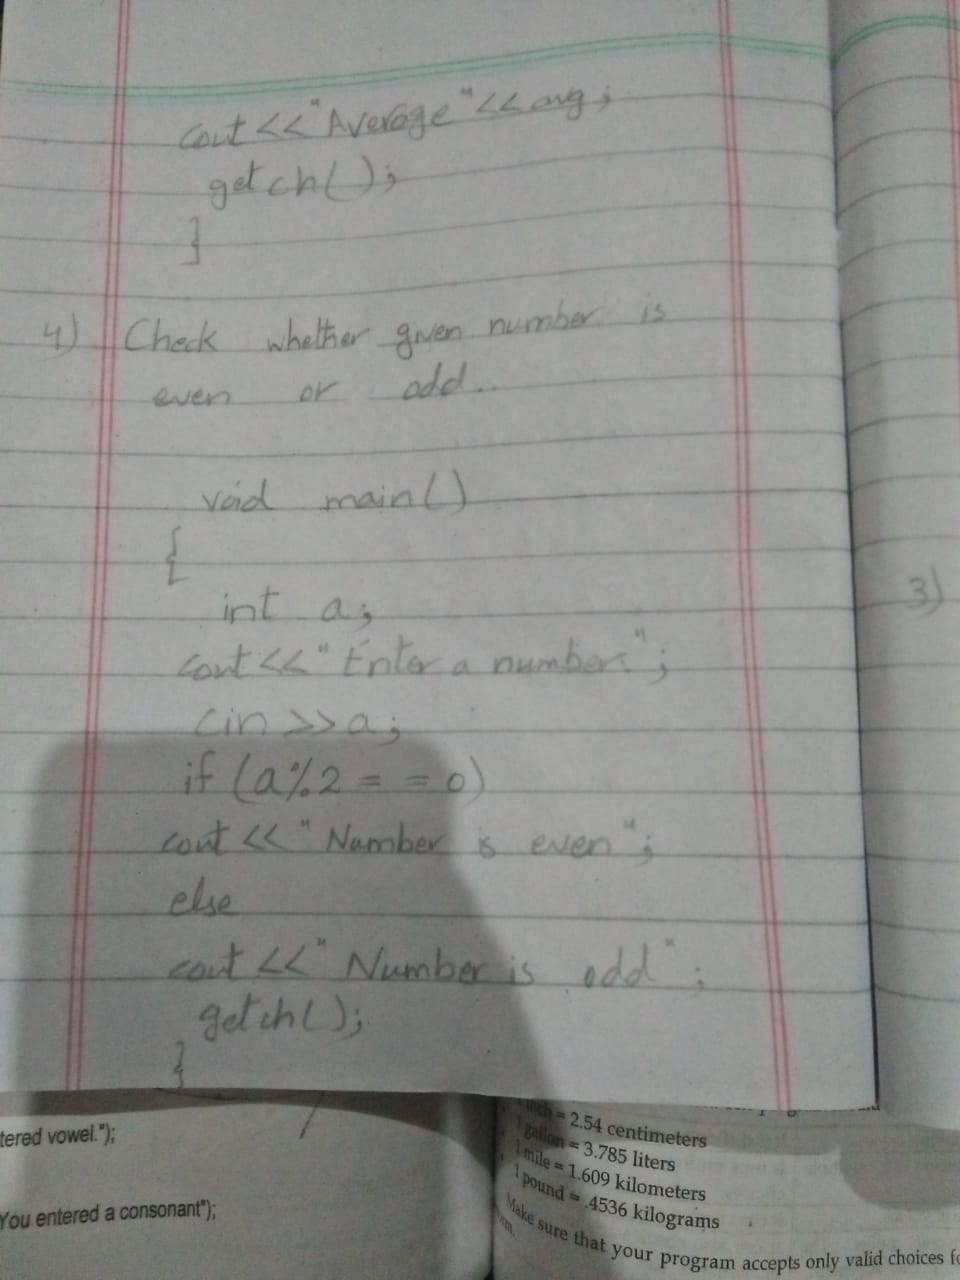 cout <<"Average"<<avg;
getch();
}
4) Check whether given number is
even or odd..
void main()
{
int a;
cout <<"Enter a number:";
cin >>a;
if (a%2 = = 0)
cout << "Number is even";
else
cout <<"Number is odd";
getch();
}
3)
tered vowel.");
You entered a consonant");
inch = 2.54 centimeters
1 gallon = 3.785 liters
1 mile = 1.609 kilometers
1 pound = .4536 kilograms
Make sure that your program accepts only valid choices